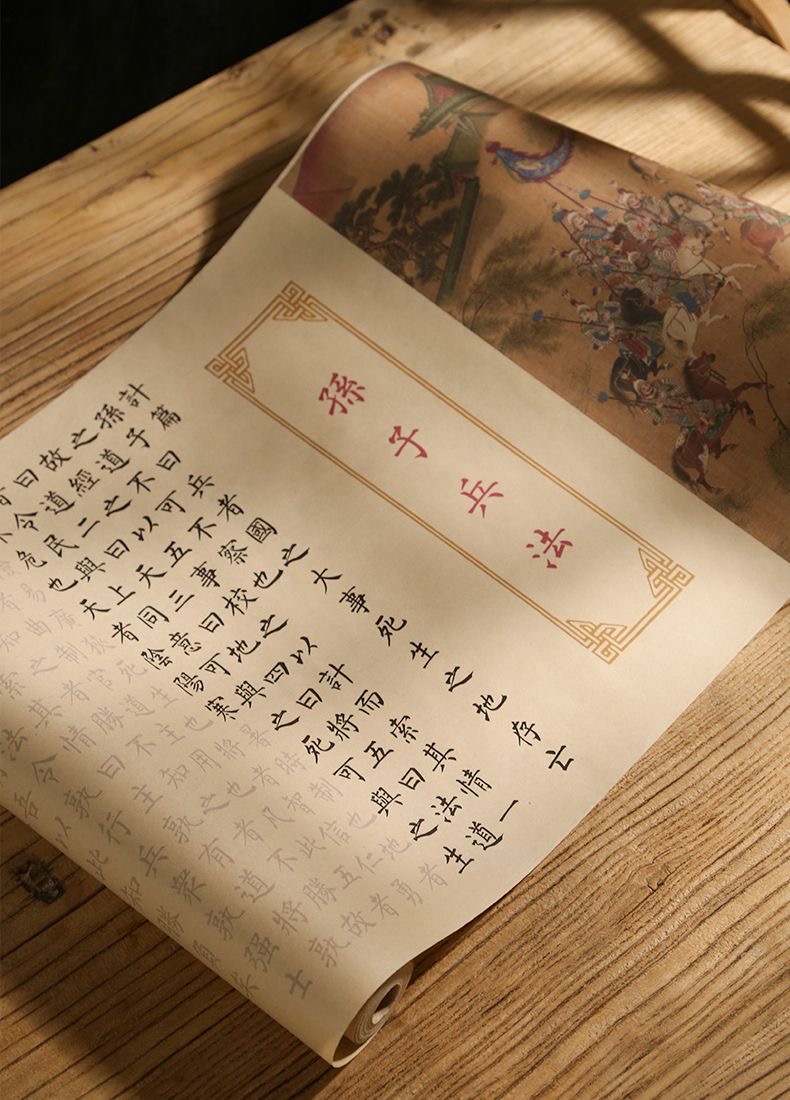 孫子兵法
計篇
孫子曰兵者國之大事死生之地存亡
之道不可不察也
故經之以五事校之以計而索其情一
曰道二曰天三曰地四曰將五曰法道
者令民與上同意可與之死可與之生
不危也天者陰陽寒暑時制也地者
險易廣狄死生也將者智信仁勇
者曲制官道主用也凡此五者
知之者勝不知之者不勝故
索其情曰主孰有道將孰
法令孰行兵衆孰強士
吾以此知勝負矣